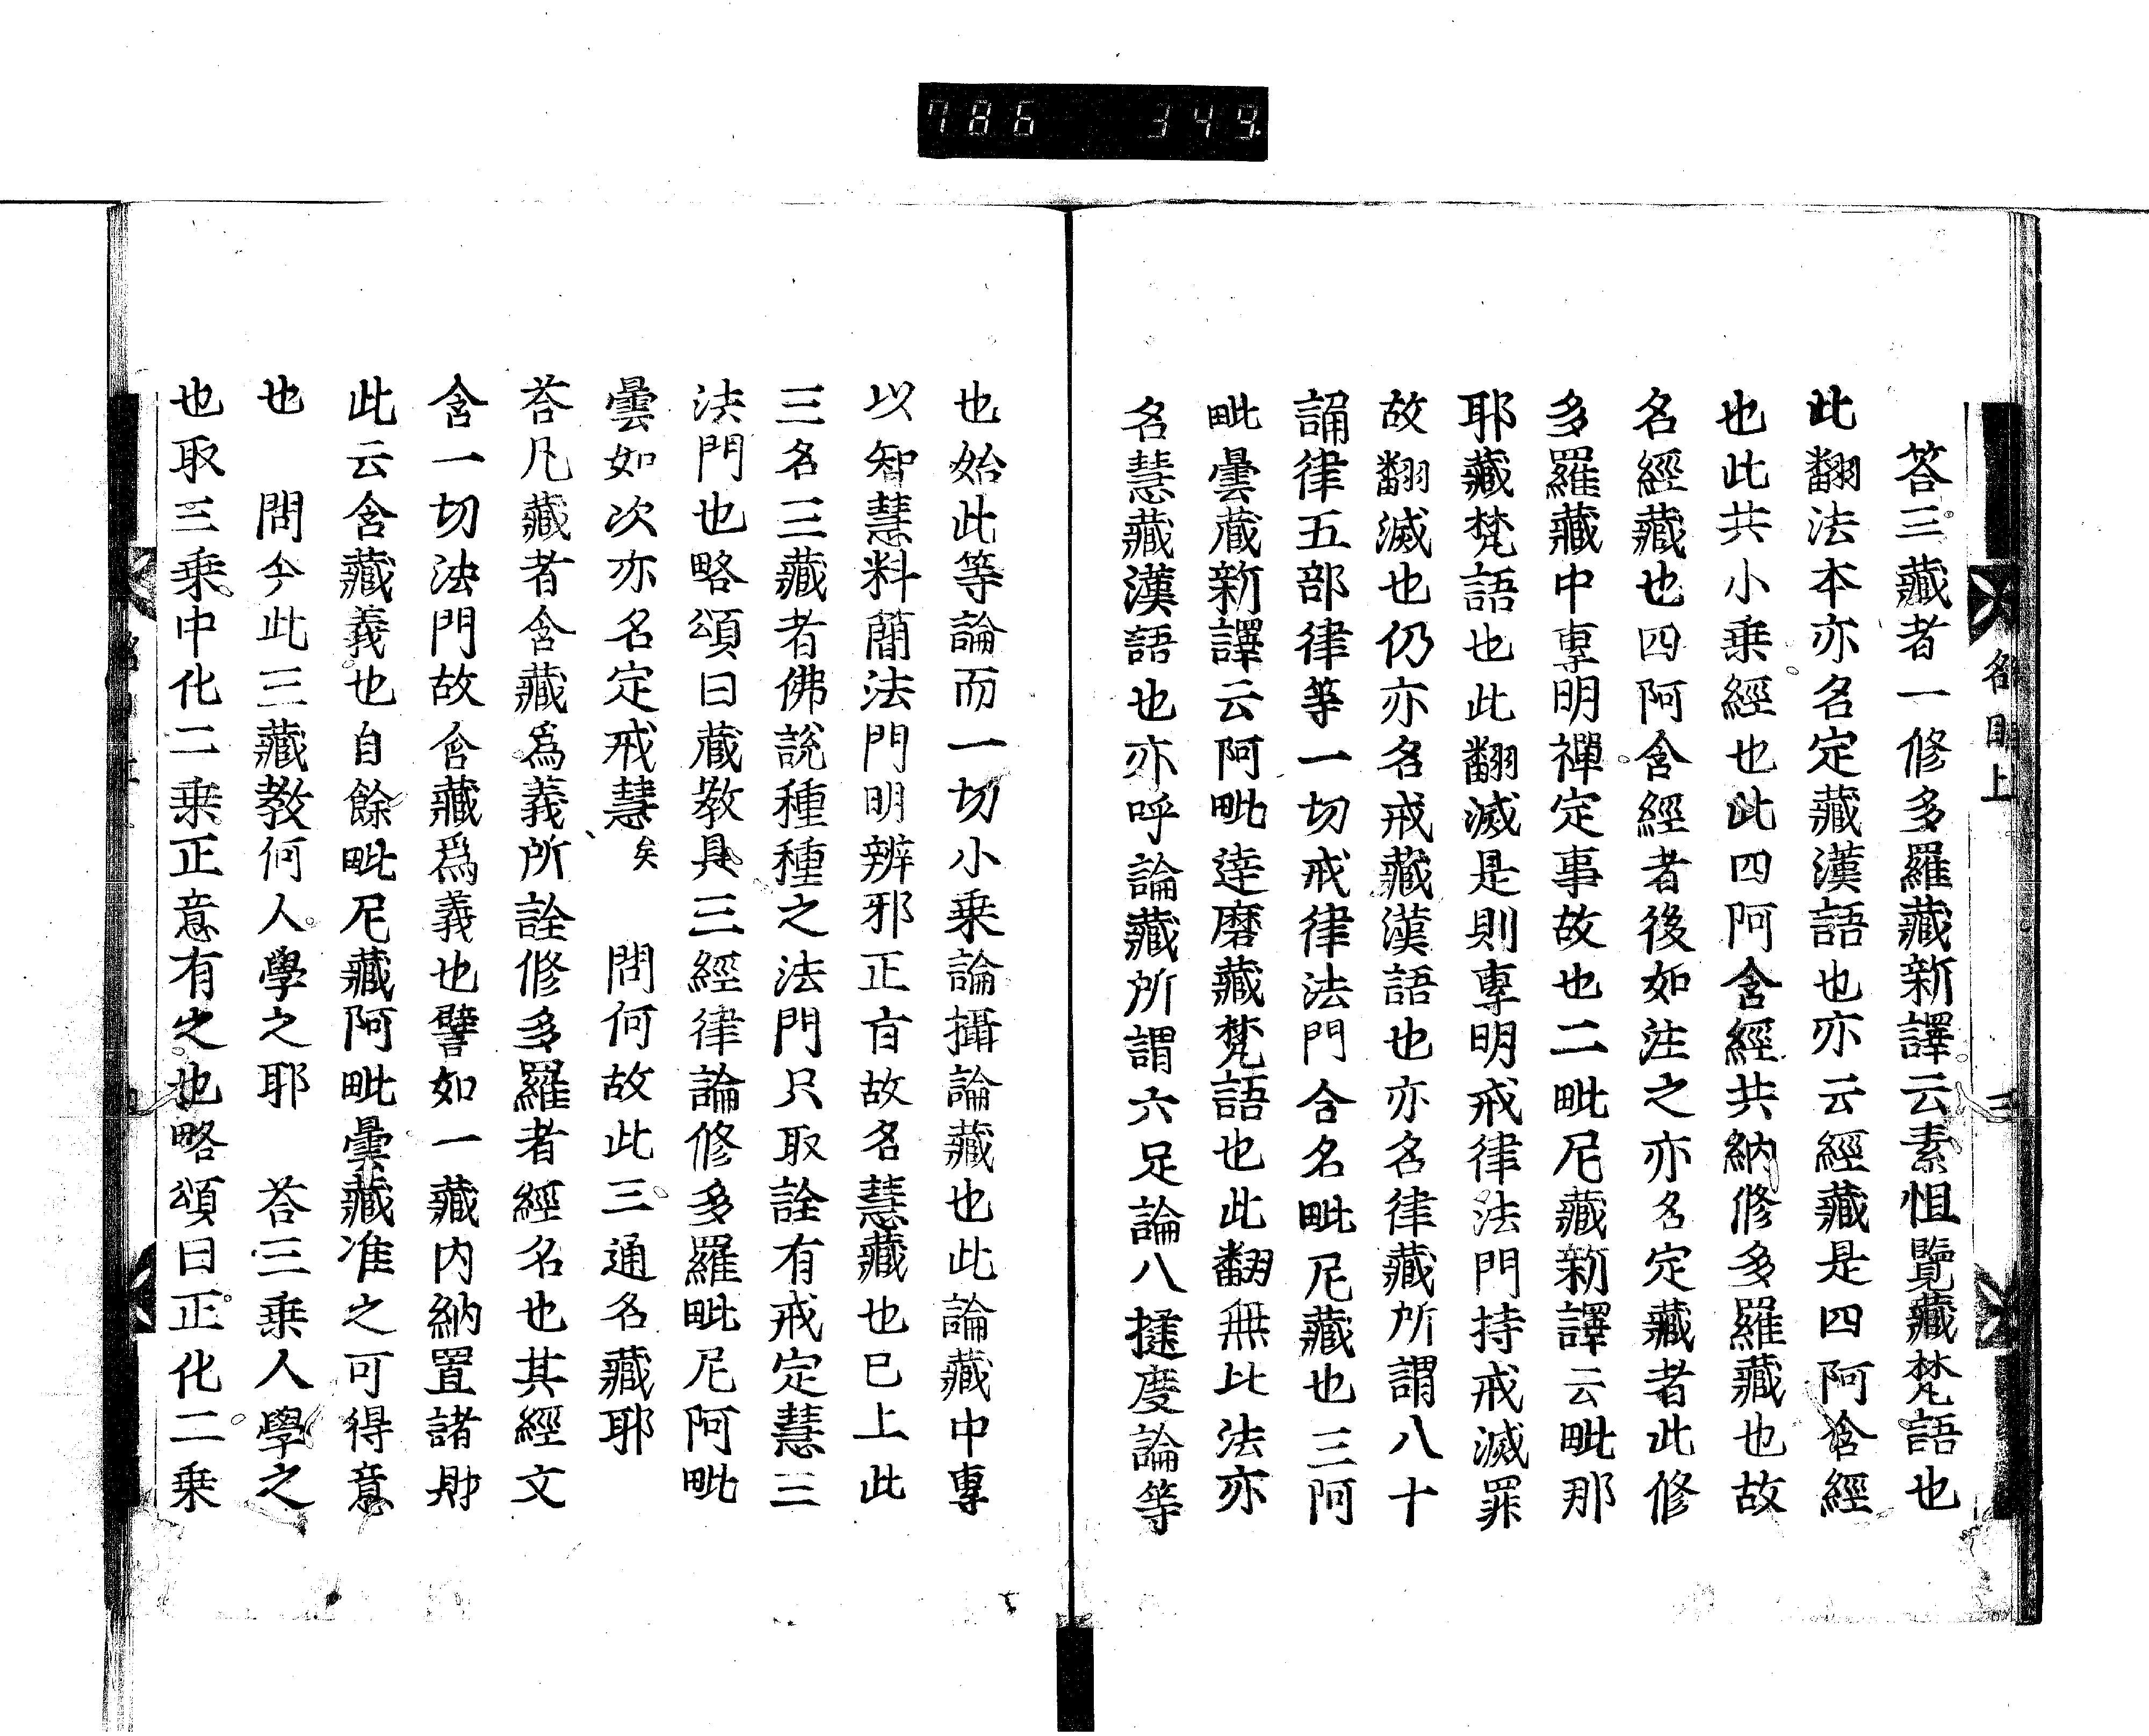 786 349.
名目上
三
答三藏者一修多羅藏新譯云素怛覽藏梵語也
此翻法本亦名定藏漢語也亦云經藏是四阿含經
也此共小乗經也此四阿含經共納修多羅藏也故
名經藏也四阿含經者後如注之亦名定藏者此修
多羅藏中專明禪定事故也二毗尼藏新譯云毗那
耶藏梵語也此翻滅是則專明戒律法門持戒滅罪
故翻滅也仍亦名戒藏漢語也亦名律藏所謂八十
誦律五部律等一切戒律法門合名毗尼藏也三阿
毗曇藏新譯云阿毗達磨藏梵語也此翻無比法亦
名慧藏漢語也亦呼論藏所謂六足論八揵度論等
也始此等論而一切小乗論攝論藏也此論藏中專
以智慧料簡法門明辨邪正旨故名慧藏也已上此
三名三藏者佛說種種之法門只取詮有戒定慧三
法門也略頌曰藏教具三經律論修多羅毗尼阿毗
曇如次亦名定戒慧矣 問何故此三通名藏耶
荅凡藏者含藏爲義所詮修多羅者經名也其經文
含一切法門故含藏爲義也譬如一藏内納置諸財
此云含藏義也自餘毗尼藏阿毗曇藏准之可得意
也 問今此三藏教何人學之耶 荅三乗人學之
也取三乗中化二乗正意有之也略頌曰正化二乗